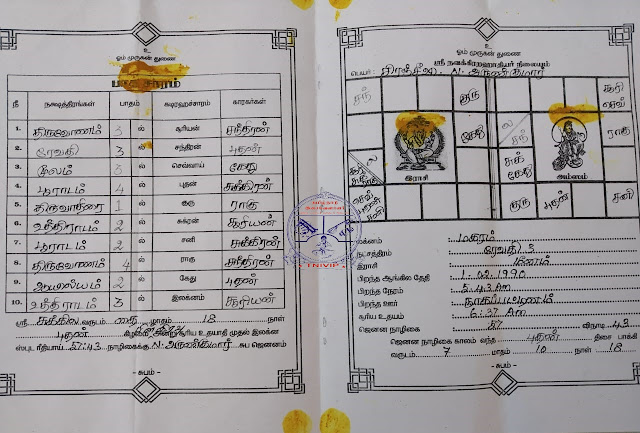 உ
ஓம் முருகன் துணை
சாரம்
நீ நக்ஷத்திரங்கள் பாதம் க்ஷரஹச்சாரம் காரகர்கள்
1. திருவோணம் 3 ல் சூரியன் சந்திரன்
2. ரேவதி 3 ல் சந்திரன் புதன்
3. மூலம் 3 ல் செவ்வாய் கேது
4. பூராடம் 4 ல் புதன் சுக்கிரன்
5. திருவாதிரை 1 ல் குரு ராகு
6. உத்திராடம் 2 ல் சுக்ரன் சூரியன்
7. பூராடம் 2 ல் சனி சுக்கிரன்
8. திருவோணம் 4 ல் ராகு சந்திரன்
9. ஆயில்யம் 2 ல் கேது புதன்
10. உத்திராடம் 3 ல் இலக்னம் சூரியன்
ஸ்ரீ சுக்கில வருடம் தை மாதம் 18 நாள்
புதன் கிழமை அன்று சூரிய உதயாதி முதல் இலக்ன
ஸ்புடரீதியாய் 57.43 நாழிகைக்கு N. அருண்குமார் சுப ஜெனனம்
- சுபம் -
உ
ஓம் முருகன் துணை
ஸ்ரீ நவக்கிரஹாதியர் நிலையும்
பெயர் : சிரஞ்சீவி : N. அருண்குமார்
சந் குரு சூரி செவ்
கேது ல சந் ராகு
இராசி சுக் கேது அம்சம்
குரு புதன் சனி
லக்னம் : மகரம்
நட்சத்திரம் : ரேவதி 3
இராசி : மீனம்
பிறந்த ஆங்கில தேதி : 1.02.1990
பிறந்த நேரம் : 5.43 Am
பிறந்த ஊர் : நாகப்பட்டிணம்
சூரிய உதயம் : 6:37 Am
ஜெனன நாழிகை : 57 விநாடி 43
ஜெனன நாழிகை காலம் வந்த புதன் திசை பாக்கி
வருடம் 7 மாதம் 10 நாள் 18
- சுபம் -